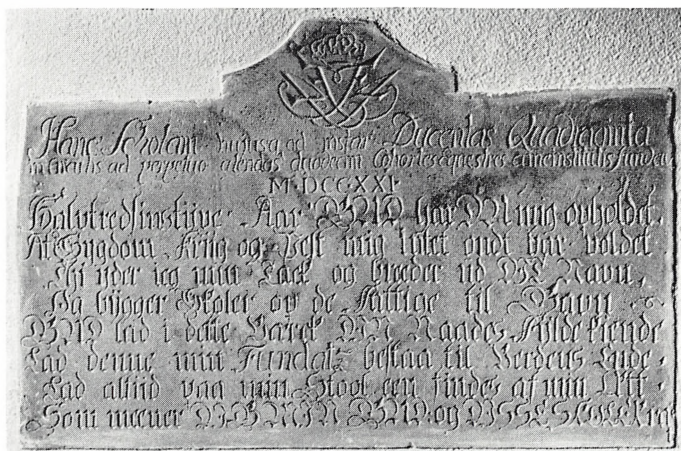 Hanc Scholam hujusq. ad instar Ducentas Quadraginta
in Circulis ad perpetuo alendas duodecim Cohortes equestres a me institutis fundavi
MDCCXXI
Halvtredsinstyve Aar GUD har DU mig opholdet
At Sygdom Kriig og Pest mig intet ondt har voldet
Thi yder ieg min Tack og breeder ud DIT Navn,
Og bygger Skoler op de Fattige til Gavn
GUD lad i dette Værck DIN Naades Fylde kiende
Lad denne min Fundatz bestaa til Verdens Ende
Lad altiid paa min Stool een findes af min Ætt
Som meener DIG MIN GUD og DISSE SKOLER